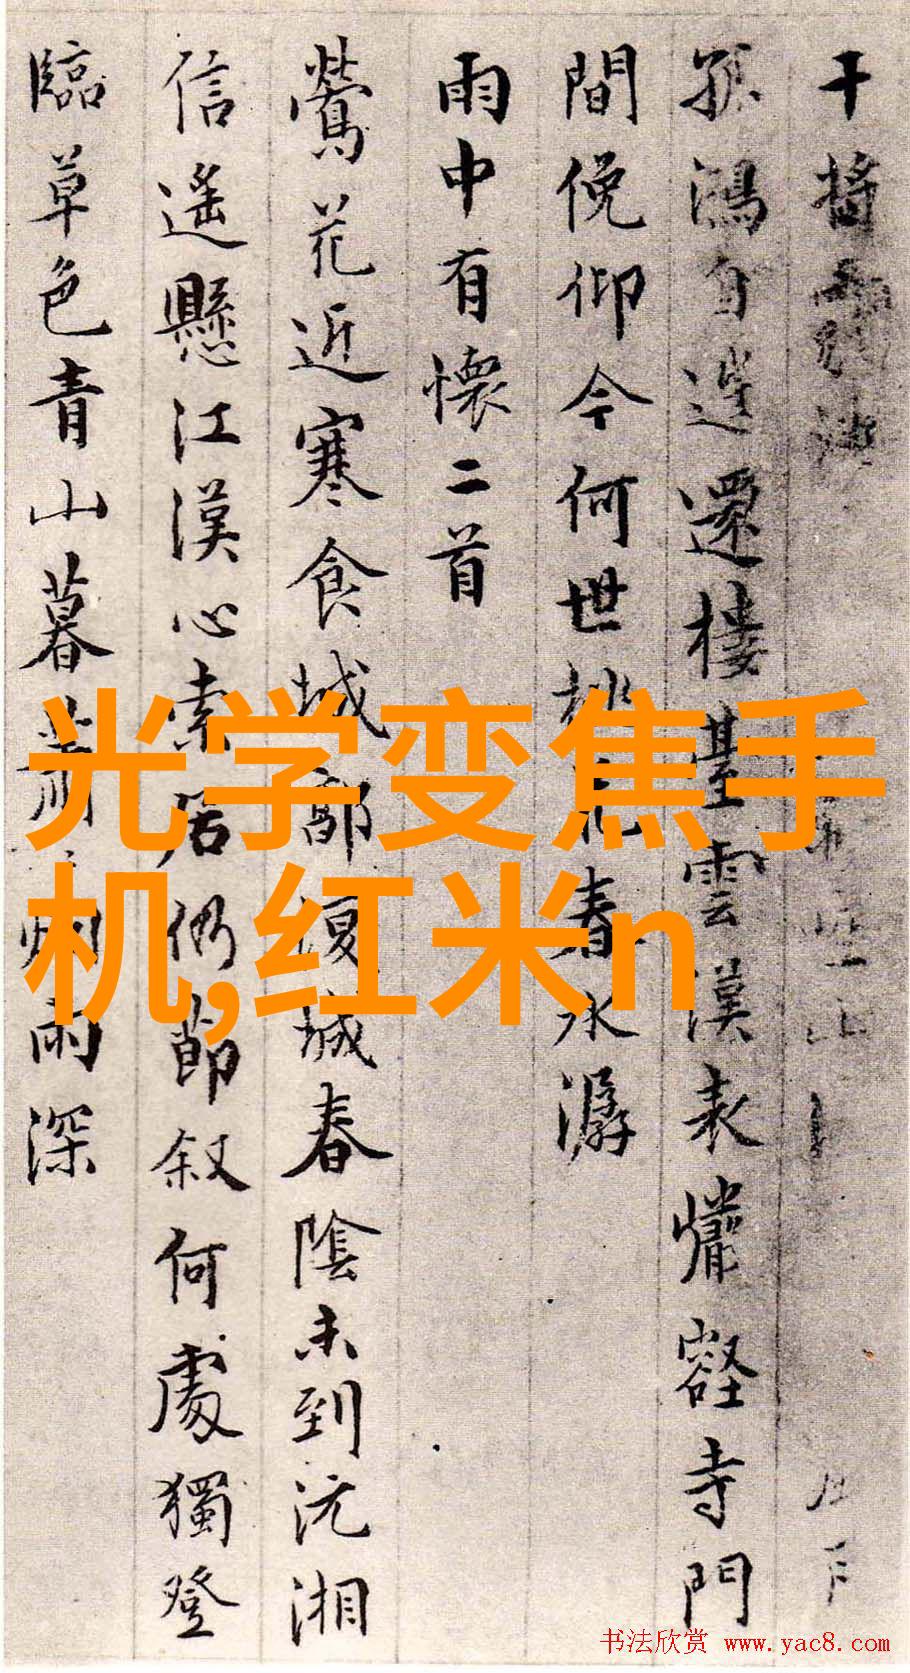 干將
孤鴻自遠還樓臺雲漢表
寺門
間俛仰今何世桃花春水潺
雨中有懷二首
鶯花近寒食城郭復城春陰未到沅湘
信遙懸江漢心索居仍節叙何處獨登
臨草色青山暮蕭蕭烟雨深
光学变焦手
机,红米n
书法欣赏 www.yac8.com